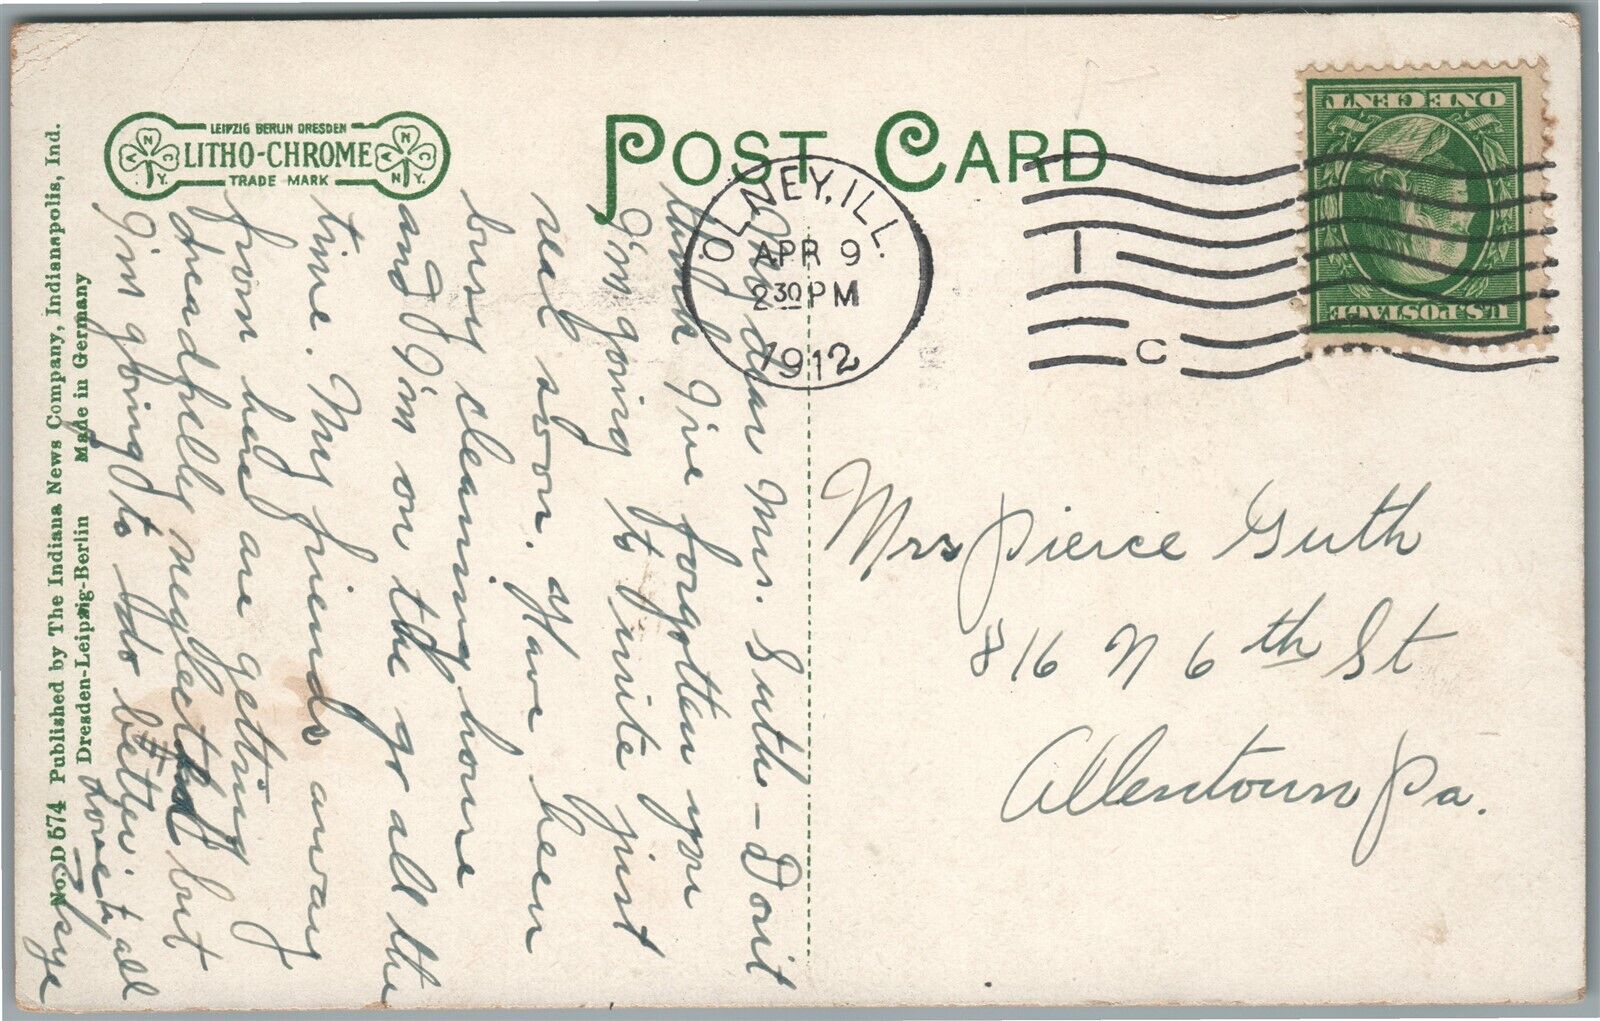 POST CARD
LEIPZIG BERLIN DRESDEN
LITHO-CHROME
TRADE MARK
A N C Y.
A N C N.Y.
No. D 574 Published by The Indiana News Company, Indianapolis, Ind.
Dresden-Leipzig-Berlin Made in Germany
OLNEY, ILL.
APR 9
2 30 PM
1912
1
C
ONE CENT
U.S. POSTAGE
My dear Mrs. Guth – Don't
think I've forgotten you
I'm going to write just
real soon. Have been
busy cleaning house
and I'm on the go all the
time. My friends away
from here are getting
dreadfully neglected but
I'm going to do better.
Love to all
Mrs Pierce Guth
816 N 6th St
Allentown Pa.